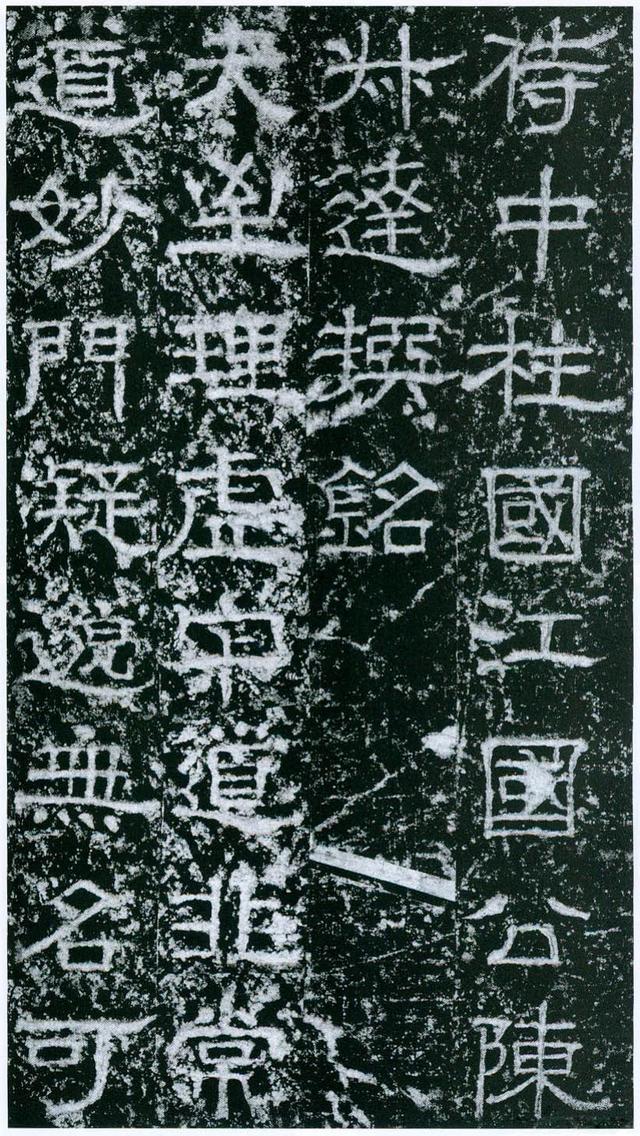 侍中柱國江國公陳
叔達撰銘
夫至理虛寂道非常
道妙門凝邈無名可